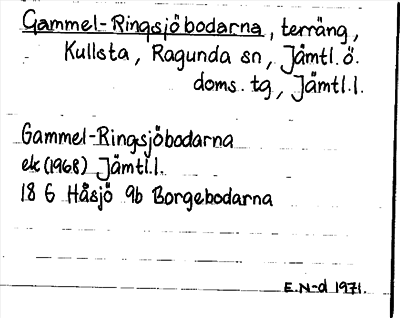 Gammel-Ringsjöbodarna, terräng,
Kullsta, Ragunda sn, Jämtl.ö.
doms. tg, Jämtl.l.
Gammel-Ringsjöbodarna
ek (1968) Jämtl.l.
18 G Håsjö 9b Borgebodarna
E.N-d 1971.